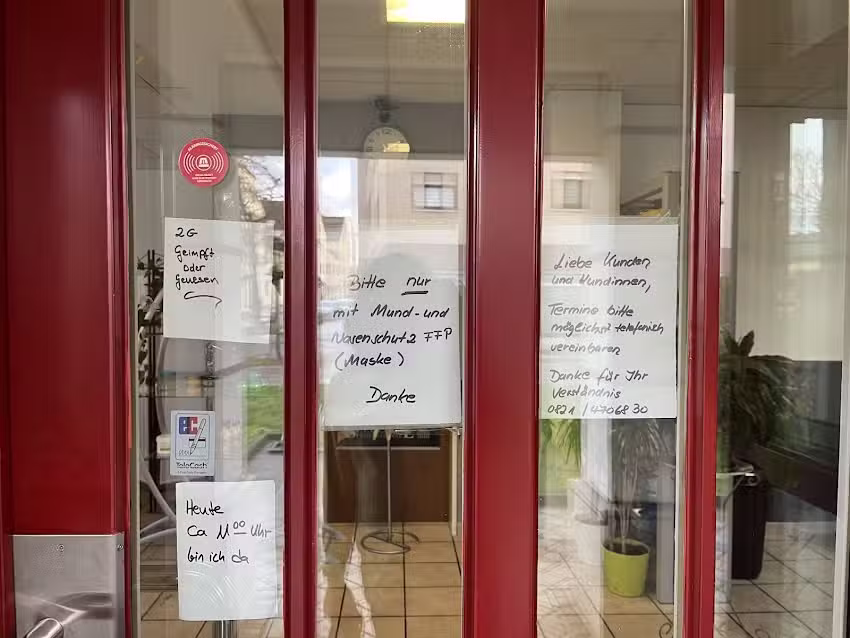 2G
Geimpft
oder
Genesen
Bitte nur
mit Mund- und
Nasenschutz FFP
(Maske)
Danke
Liebe Kunden
und Kundinnen,
Termine bitte
möglichst telefonisch
vereinbaren
Danke für Ihr
Verständnis
0821 / 4706830
ec
TeleCash
Heute
Ca 11 00 Uhr
bin ich da